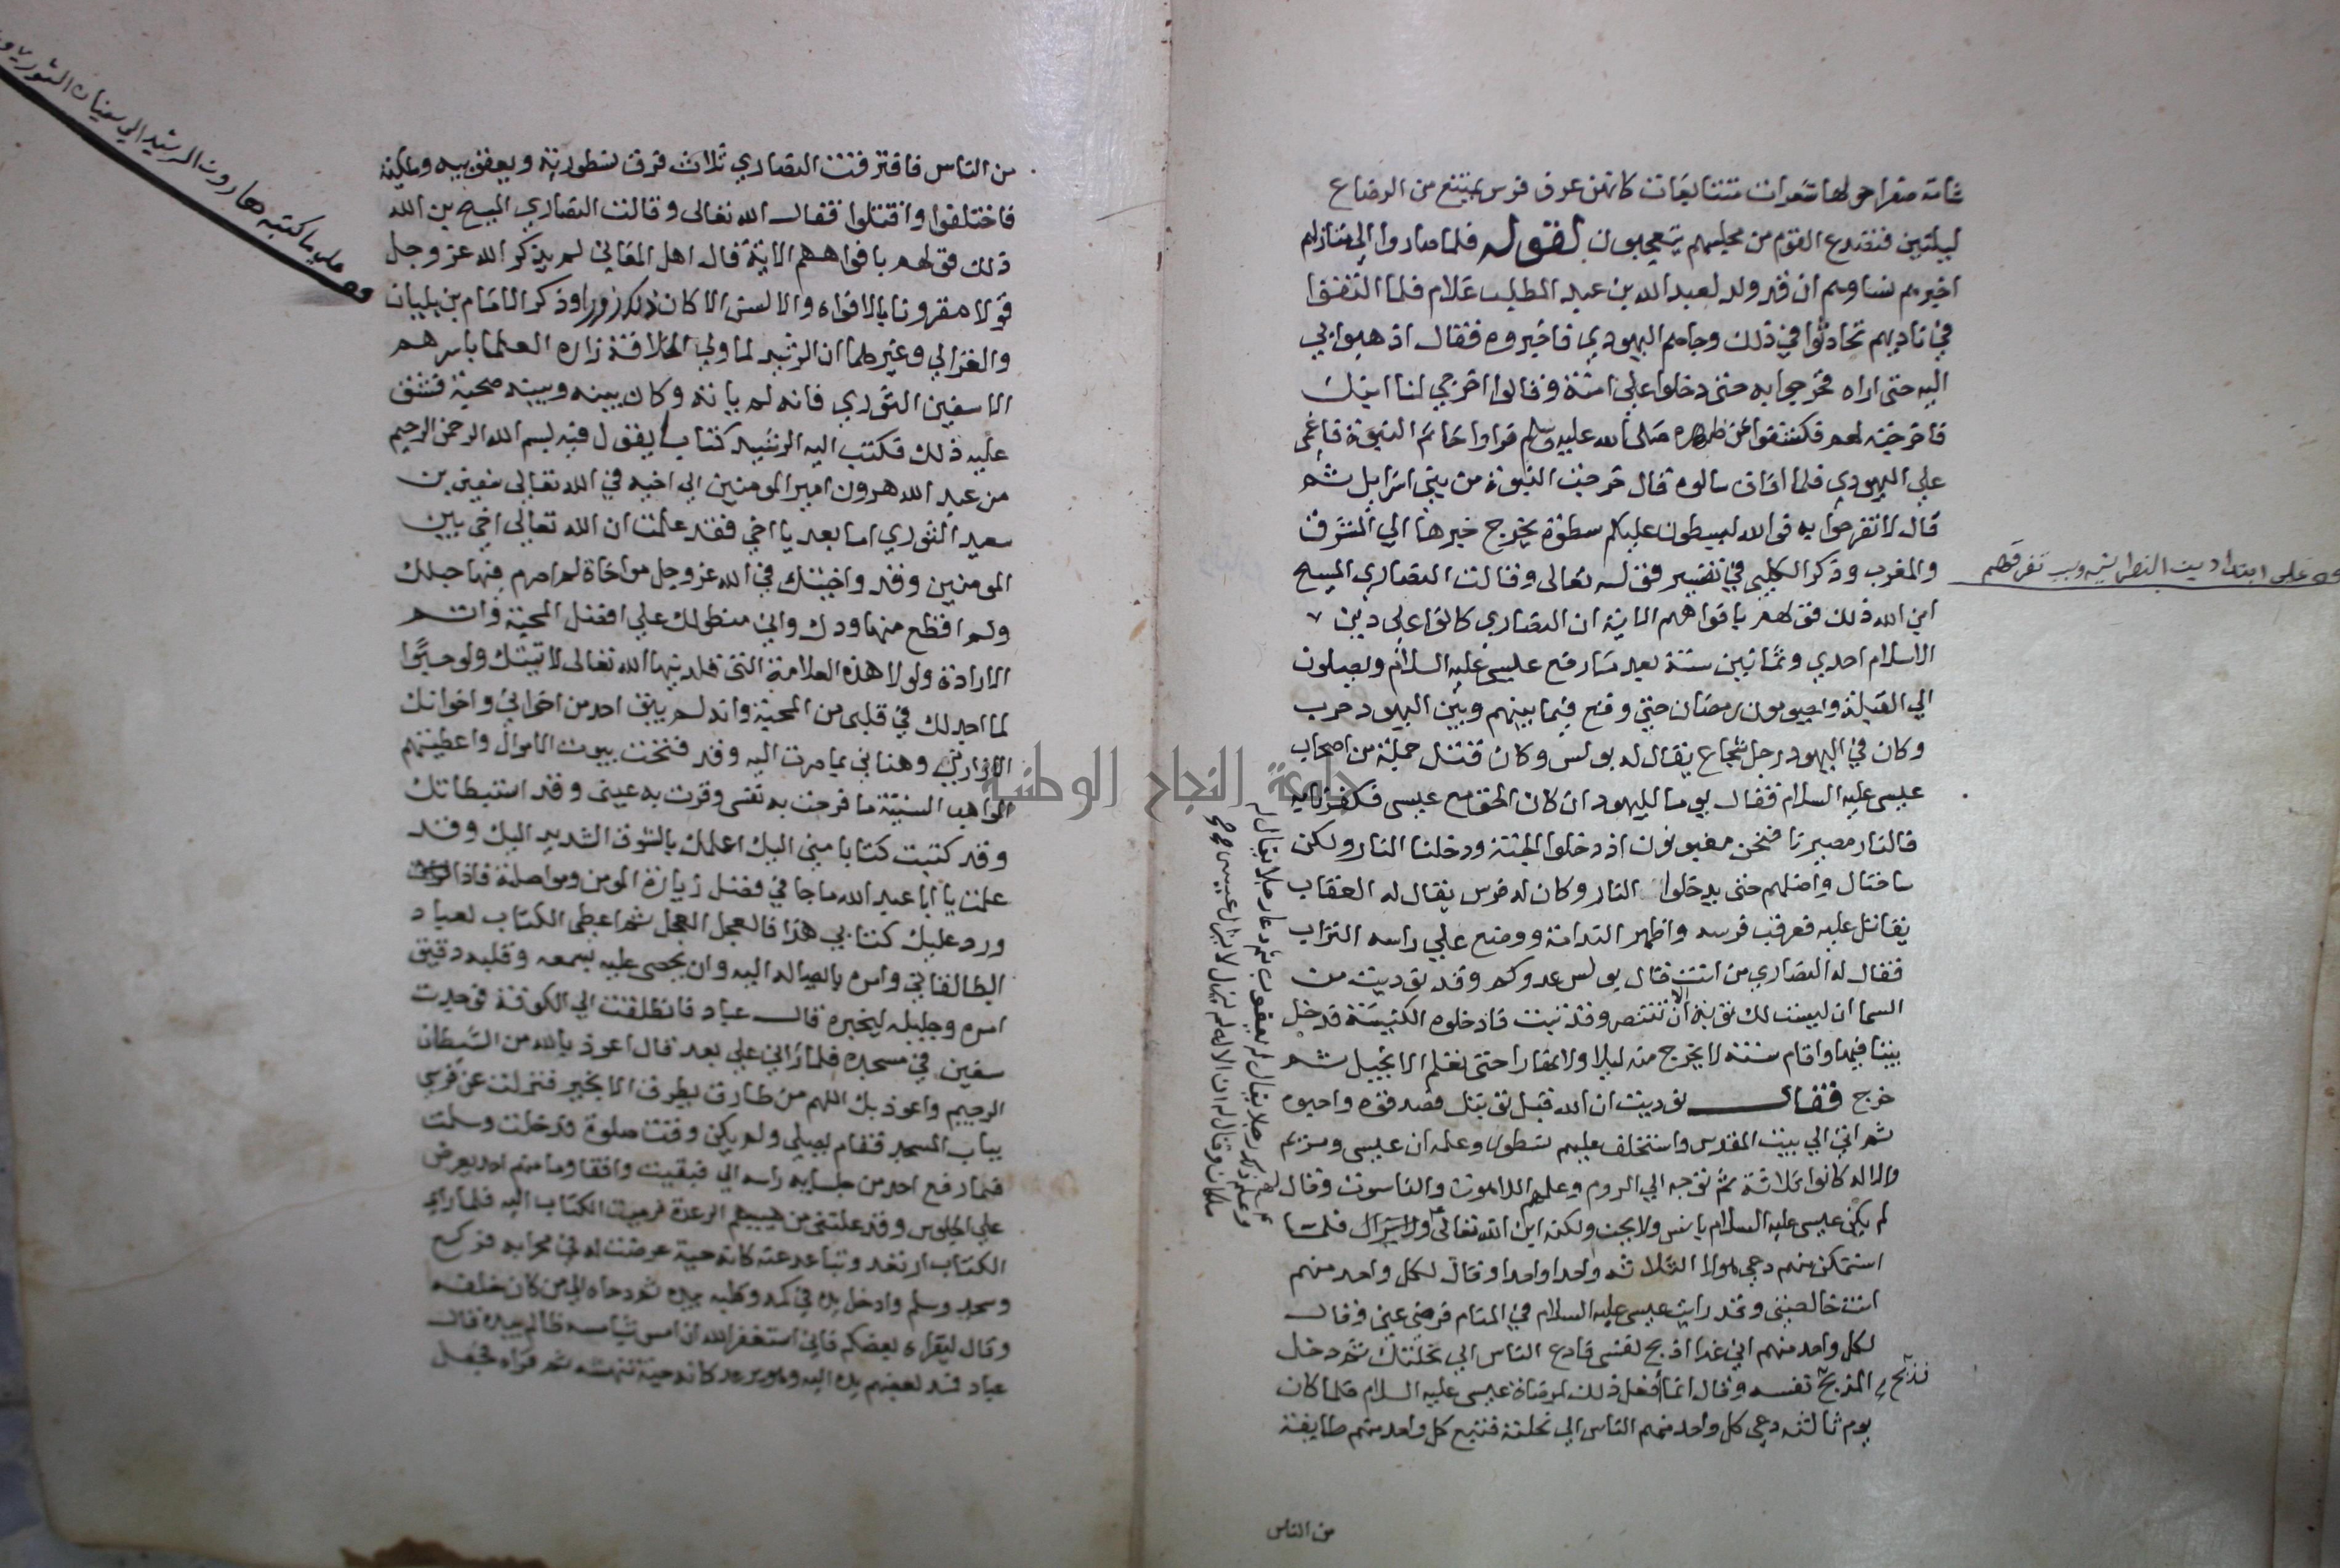 شامة صفرا حولها شعرات متتابعات كانهن عرف فرس يمتنع من الرضاع
ليلتين فتفتدع القوم من مجلسهم يتعجبون لقوله فلما صاروا الي منازلهم
اخبرهم نساوهم ان قد ولد لعبد الله بن عبد المطلب غلام فلما التفقوا
في ناديهم تحادثوا في ذلك وجاهم اليهودي فاخبروه فقال اذهبوا بي
اليه حتى اراه فخرجوا به حتى دخلوا علي امنة وقالوا اخرجي لنا ابنك
فاخرجته لهم فكشفوا عن ظهره صلى الله عليه وسلم فراوا خاتم النبوة فاغمى
علي اليهودي فلما افاق سالوه قال خرجت النبوة من بني اسرايل ثم
قال لا تفرحوا به فو الله ليسطون عليكم سطوة يخرج خبرها الي المشرق
والمغرب وذكر الكلبي في تفسير قوله تعالى وقالت النصاري المسيح
ابن الله ذلك قولهم بافواههم الاية ان النصاري كانوا علي دين
الاسلام احدي وثمانين سنة بعد ما رفع عيسى عليه السلام ويصلون
الي القبلة ويصومون رمضان حتي وقع فيما بينهم وبين اليهود حرب
وكان في اليهود رجل شجاع يقال له بولس وكان قتل جملة من اصحاب
عيسى عليه السلام فقال يوما لليهود ان كان الحق مع عيسى فكفرنا به
فالنار مصيرنا فنحن مغبونون اذ دخلوا الجنة ودخلنا النار ولكن
ساحتال واضلهم حتى يدخلوا النار وكان له فرس يقال له العقاب
يقاتل عليه فعرقب فرسه واظهر الندامة ووضع علي راسه التراب
فقال له النصاري من انت قال بولس عدوكم وقد نوديت من
السما ان ليست لك توبة الا ان تتنصر وقد تبت فادخلوه الكنيسة فدخل
بيتا فيها واقام سنة لا يخرج منه ليلا ولا نهارا حتى تعلم الانجيل ثم
خرج فقال نوديت ان الله قبل توبتك فصدقوه واحبوه
ثم اتي الي بيت المقدس واستخلف عليهم نسطور وعلمه ان عيسى ومريم
والاله كانوا ثلاثة ثم توجه الي الروم وعلمهم اللاهوت والناسوت وقال لهم
لم يكن عيسى عليه السلام بانس ولا بجن ولكنه ابن الله تعالى فلما
استمكن منهم دعي هولا الثلاثه واحدا واحدا وقال لكل واحد منهم
انت خالصتي وقد رايت عيسى عليه السلام في المنام فرضي عني وقال
لكل واحد منهم اني غدا اذبح نفسي فادع الناس الي نحلتك ثم دخل
المذبح نفسه وقال انما افعل ذلك لمرضاة عيسى عليه السلام فلما كان
يوم ثالثه دعي كل واحد منهم الناس الي نحلته فتبع كل واحد منهم طايفة
من الناس
علي ابتداء دين النصرانية وسبب تفرقهم
جامعة النجاح الوطنية
من الناس فافترقت النصاري ثلاث فرق نسطورية ويعقوبيه وملكية
فاختلفوا واقتتلوا فقال الله تعالى وقالت النصاري المسيح بن الله
ذلك قولهم بافواههم الاية قال اهل المعاني لم يذكر الله عز وجل
قولا مقرونا بالافواه والالسن الا كان ذلك زورا وذكر الامام بن بلبان
والغزالي وغيرهما ان الرشيد لما ولي الخلافة زاره العلما باسرهم
الا سفين الثوري فانه لم ياته وكان بينه وبينه صحبة فشق
عليه ذلك فكتب اليه الرشيد كتابا يقول فيه بسم الله الرحمن الرحيم
من عبد الله هرون امير المومنين الي اخيه في الله تعالى سفين بن
سعيد الثوري اما بعد يا اخي فقد علمت ان الله تعالى اخي بين
المومنين وقد واخيتك في الله عز وجل مواخاة لم اصرم فيها حبلك
ولم اقطع منها ودك واني منطو لك علي افضل المحبة واتم
الارادة ولولا هذه العلامة التي قلدنيها الله تعالى لاتيتك ولو حبوا
لما اجد لك في قلبي من المحبة وانه لم يبق احد من اخواني واخوانك
الا زارني وهناني بما صرت اليه وقد فتحت بيوت الاموال واعطيتهم
المواهب السنية ما فرحت به نفسي وقرت به عيني وقد استبطاتك
وقد كتبت كتابا مني اليك اعلمك بالشوق الشديد اليك وقد
علمت يا ابا عبد الله ما جا في فضل زيارة المومن ومواصلته فاذا
ورد عليك كتابي هذا فالعجل العجل ثم اعطى الكتاب لعباد
الطالقاني وامره بايصاله اليه وان يحصي عليه بسمعه وقلبه دقيق
امره وجليله ليخبره قال عباد فانطلقت الي الكوفة فوجدت
سفين في مسجده فلما راني علي بعد قال اعوذ بالله من الشيطان
الرجيم واعوذ بك اللهم من طارق يطرق الا بخير فنزلت عن فرسي
بباب المسجد فقام يصلي ولم يكن وقت صلوة فدخلت وسلمت
فما رفع احد من جلسايه راسه الي فبقيت واقفا وما منهم احد يعرض
علي الجلوس وقد علتني من هيبتهم الرعدة فرميت الكتاب اليه فلما راي
الكتاب ارتعد وتباعد عنه كانه حية عرضت له في محرابه فركع
وسجد وسلم وادخل يده في كمه وقلبه بيده ثم رماه الي من كان خلفه
وقال ليقراه بعضكم فاني استغفر الله ان امس شيا مسه ظالم بيده قال
عباد فمد بعضهم يده اليه وهو يرعد كانه حية تنهشه ثم قراه فجعل